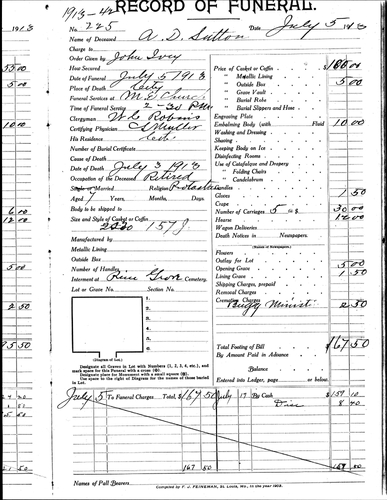 1913-42
RECORD OF FUNERAL.
No. 225 Date July 5 1913
Name of Deceased A. D. Sutton
Charge to
Order Given by John Ivey
How Secured
Date of Funeral July 5 1913
Place of Death City
Funeral Services at M. E. Church
Time of Funeral Service 2-30 PM
Clergyman W. C. Robins
Certifying Physician
His Residence City
Number of Burial Certificate
Cause of Death
Date of Death July 3 1913
Occupation of the Deceased Retired
Single or Married Religion
Aged 7 Years, Months, Days.
Body to be shipped to
Size and Style of Casket or Coffin
157 J.
Manufactured by
Metallic Lining
Outside Box
Number of Handles
Interment at Pine Grove Cemetery.
Lot or Grave No. Section No.
1.
2.
3.
4.
5.
6.
(Diagram of Lot.)
Designate all Graves in Lot with Numbers (1, 2, 3, 4, etc.), and mark space for this Funeral with a cross (⊗).
Designate place for Monument with a small square (⊡).
Use space to the right of Diagram for the names of those buried in Lot.
Price of Casket or Coffin $100.00
" Metallic Lining
" Outside Box 5 00
" Grave Vault
" Burial Robe
" Burial Slippers and Hose
Engraving Plate
Embalming Body (with Fluid) 10.00
Washing and Dressing
Shaving
Keeping Body on Ice
Disinfecting Rooms
Use of Catafalque and Drapery
" Folding Chairs
" Candelabrum
Candles
Gloves 1 50
Crape
Number of Carriages 5 @ $ 30.00
Hearse 12.00
Wagon Deliveries
Death Notices in Newspapers
(Names of Newspapers.)
Flowers
Outlay for Lot
Opening Grave 5.00
Lining Grave 1 50
Shipping Charges, prepaid
Removal Charges
Cremation Charges
Buggy Minist 2 50
Total Footing of Bill $167.50
By Amount Paid in Advance
Balance
Entered into Ledger, page or below.
July 5 To Funeral Charges Total, $167 50 July 17 By Cash $159 10
Disc 8 40
167 50
167 50
Names of Pall Bearers
Compiled by F. J. FEINEMAN, St. Louis, Mo., in the year 1903.